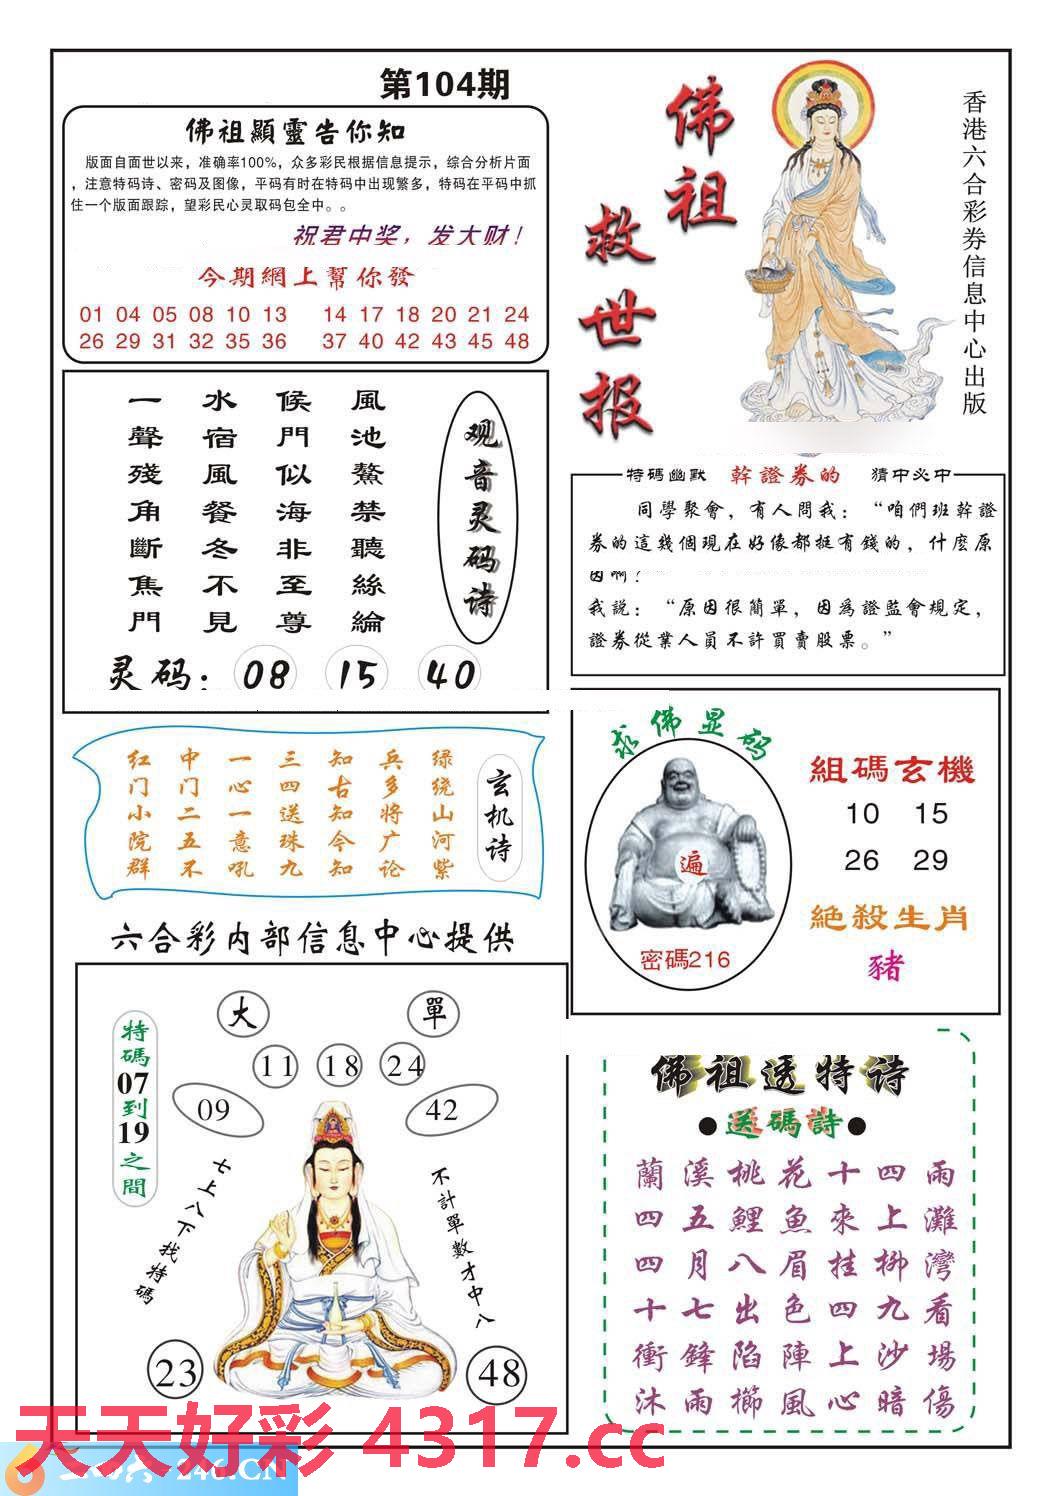 第104期
佛祖顯靈告你知
版面自面世以来，准确率100%，众多彩民根据信息提示，综合分析片面
，注意特码诗、密码及图像，平码有时在特码中出现繁多，特码在平码中抓
住一个版面跟踪，望彩民心灵取码包全中。。
祝君中奖，发大财！
今期網上幫你發
01 04 05 08 10 13 14 17 18 20 21 24
26 29 31 32 35 36 37 40 42 43 45 48
佛祖
救世报
香港六合彩券信息中心出版
观音灵码诗
風池鰲禁聽絲綸
候門似海非至尊
水宿風餐冬不見
一聲殘角斷焦門
灵码：08 15 40
特碼幽默 幹證券的 猜中必中
同學聚會，有人問我：“咱們班幹證
券的這幾個現在好像都挺有錢的，什麼原
因啊？
我説：“原因很簡單，因爲證監會規定，
證券從業人員不許買賣股票。”
玄机诗
绿绕山河紫
兵多将广论
知古知今知
三四送珠九
一心一意吼
中门二五不
红门小院群
求佛显码
遍
密碼216
組碼玄機
10 15
26 29
絕殺生肖
豬
六合彩内部信息中心提供
大 單
11 18 24
09 42
特碼07到19之間
七上八下找特碼
不計單數才中八
23 48
佛祖透特诗
●送碼詩●
蘭溪桃花十四雨
四五鯉魚來上灘
四月八眉挂柳灣
十七出色四九看
衝鋒陷陣上沙場
沐雨櫛風心暗傷
天天好彩 4317.cc
246.CN